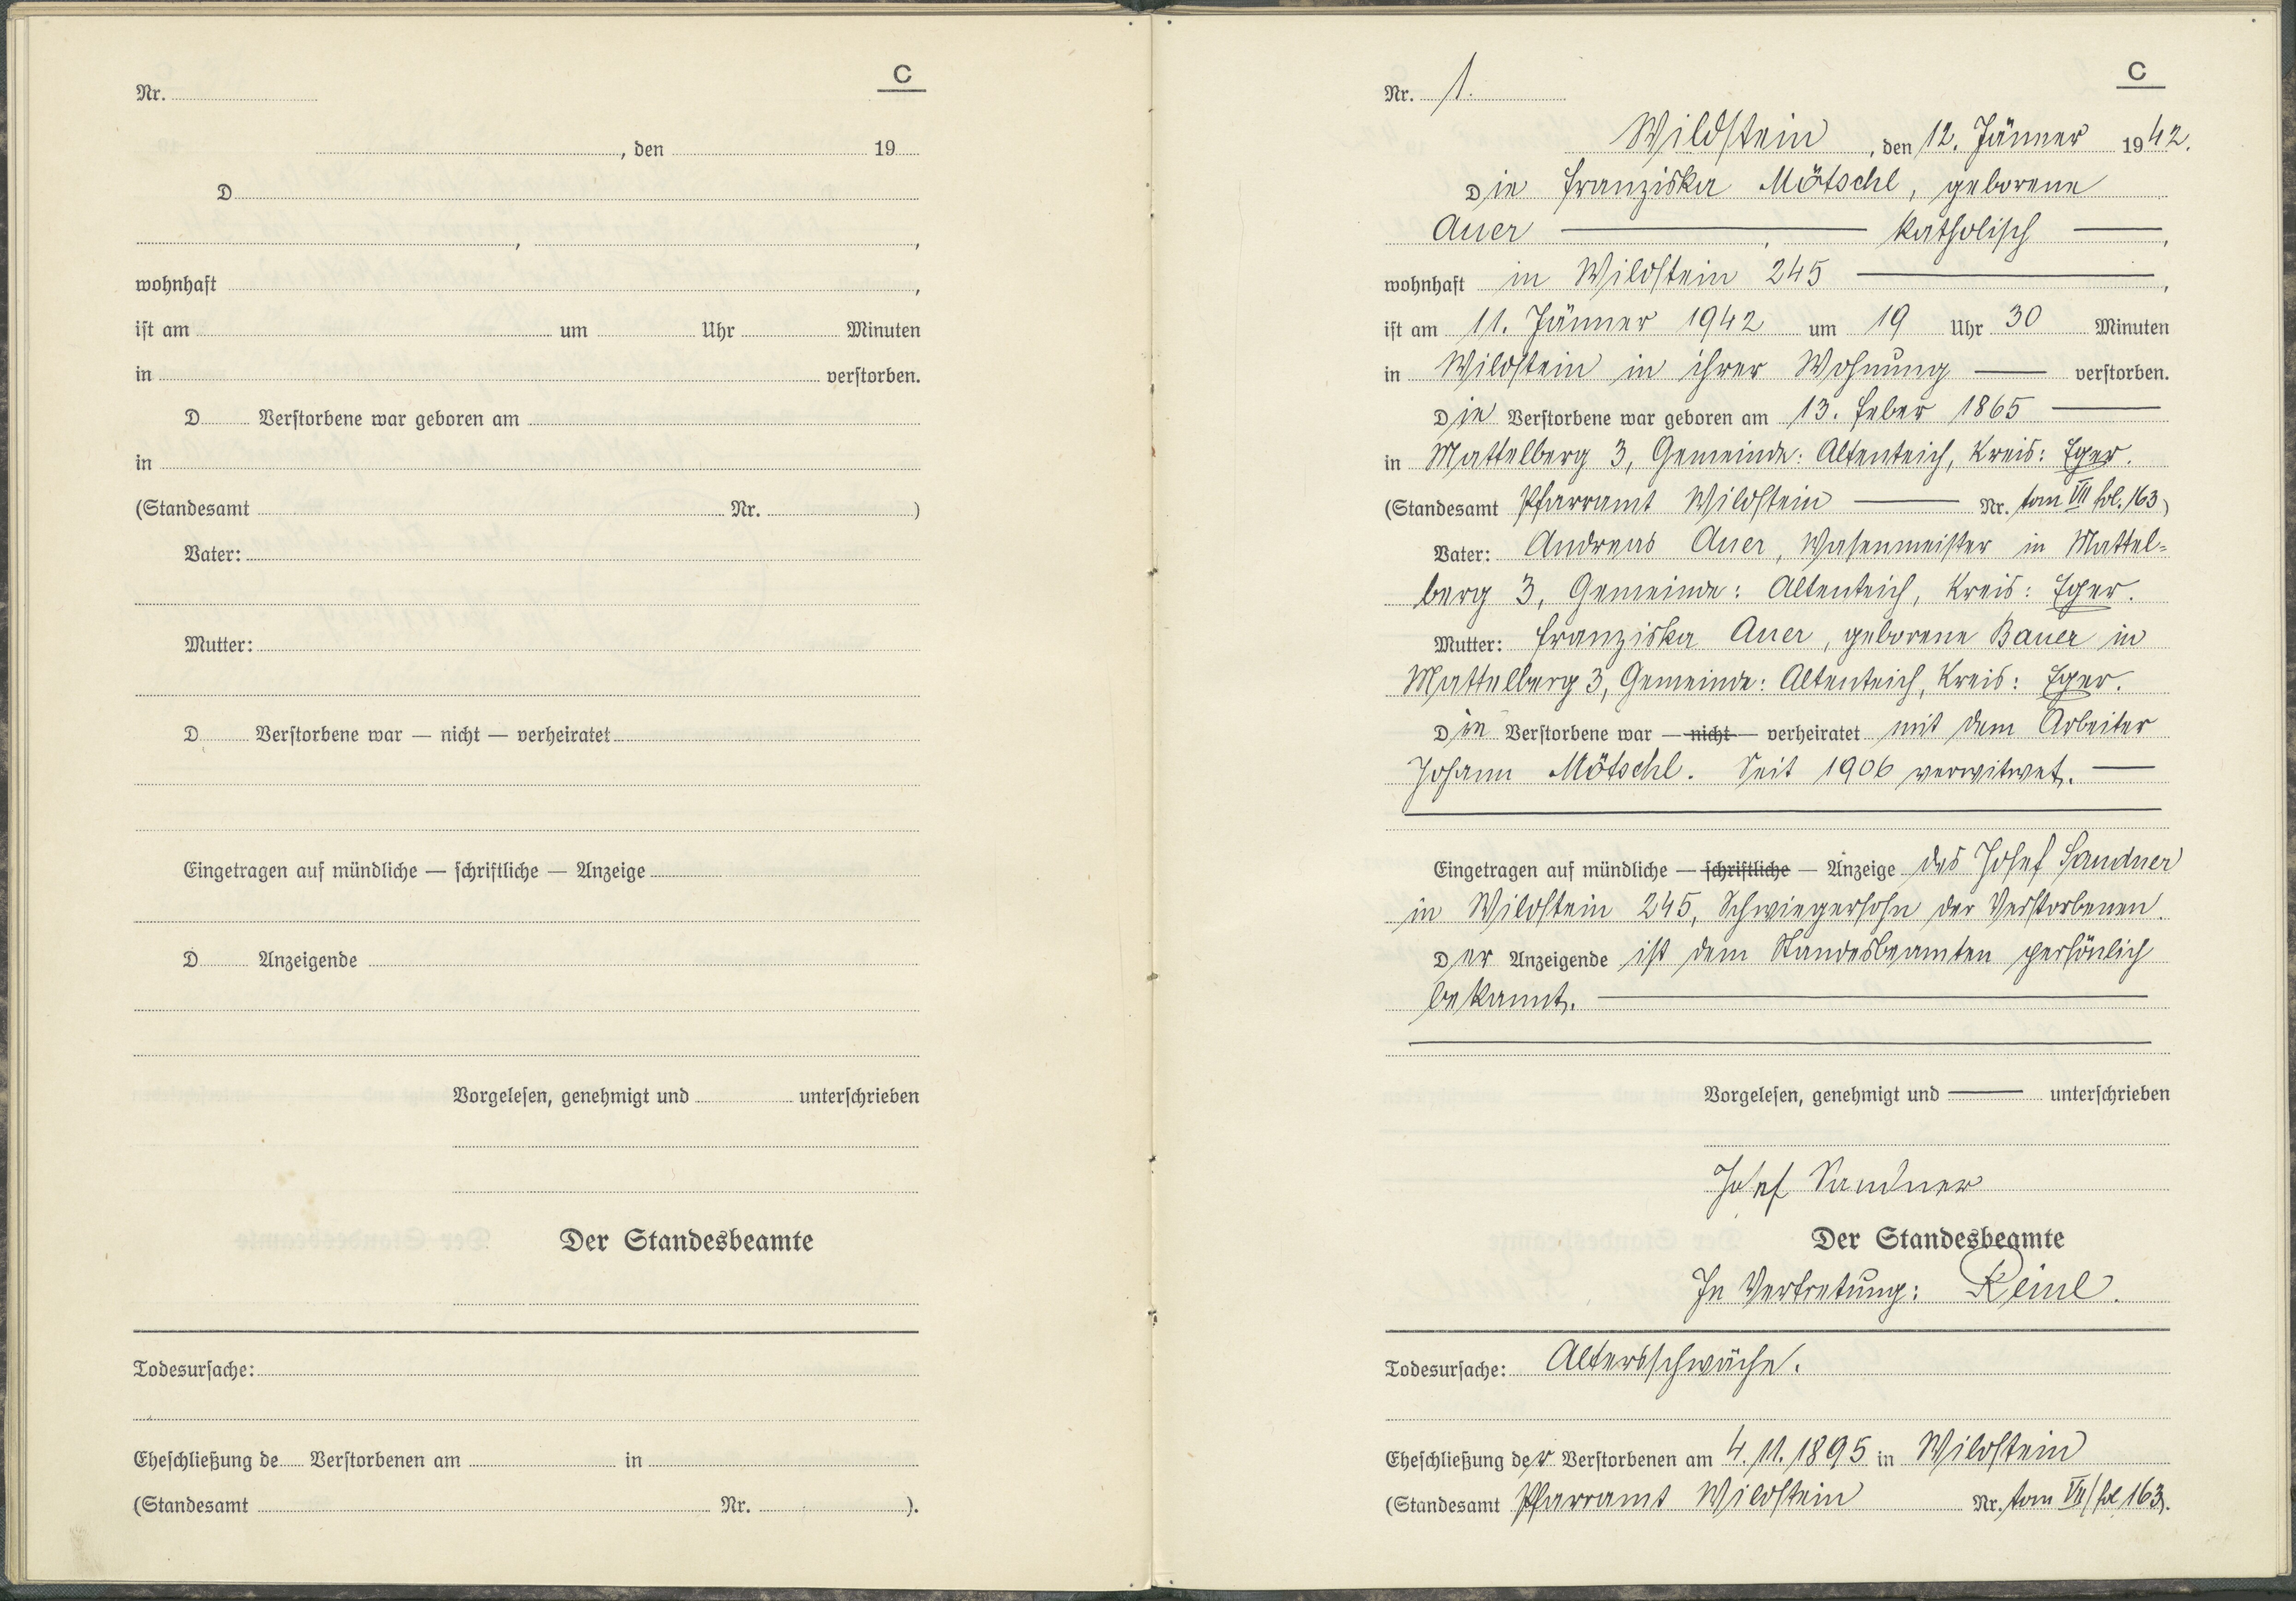 C
Nr.
, den 19
D
, ,
wohnhaft ,
ist am um Uhr Minuten
in verstorben.
D Verstorbene war geboren am
in
(Standesamt Nr. )
Vater:
Mutter:
D Verstorbene war — nicht — verheiratet
Eingetragen auf mündliche — schriftliche — Anzeige
D Anzeigende
Vorgelesen, genehmigt und unterschrieben
Der Standesbeamte
Todesursache:
Eheschließung de Verstorbenen am in
(Standesamt Nr. ).
C
Nr. 1.
Wildstein, den 12. Jänner 1942.
Die Franziska Mötschl, geborene
Auer —, katholisch —,
wohnhaft in Wildstein 245 —,
ist am 11. Jänner 1942 um 19 Uhr 30 Minuten
in Wildstein in ihrer Wohnung — verstorben.
Die Verstorbene war geboren am 13. Feber 1865 —
in Mattelberg 3, Gemeinde: Altenteich, Kreis: Eger.
(Standesamt Pfarramt Wildstein — Nr. tom VII fol. 163)
Vater: Andreas Auer, Wasenmeister in Mattel-
berg 3, Gemeinde: Altenteich, Kreis: Eger.
Mutter: Franziska Auer, geborene Bauer in
Mattelberg 3, Gemeinde: Altenteich, Kreis: Eger.
Die Verstorbene war — nicht — verheiratet mit dem Arbeiter
Johann Mötschl. Seit 1906 verwitwet. —
Eingetragen auf mündliche — schriftliche — Anzeige des Josef Sandner
in Wildstein 245, Schwiegersohn der Verstorbenen.
Der Anzeigende ist dem Standesbeamten persönlich
bekannt. —
Vorgelesen, genehmigt und — unterschrieben
Josef Sandner
Der Standesbeamte
In Vertretung: Reinl.
Todesursache: Altersschwäche.
Eheschließung der Verstorbenen am 4.11.1895 in Wildstein
(Standesamt Pfarramt Wildstein Nr. tom VII/fol 163).